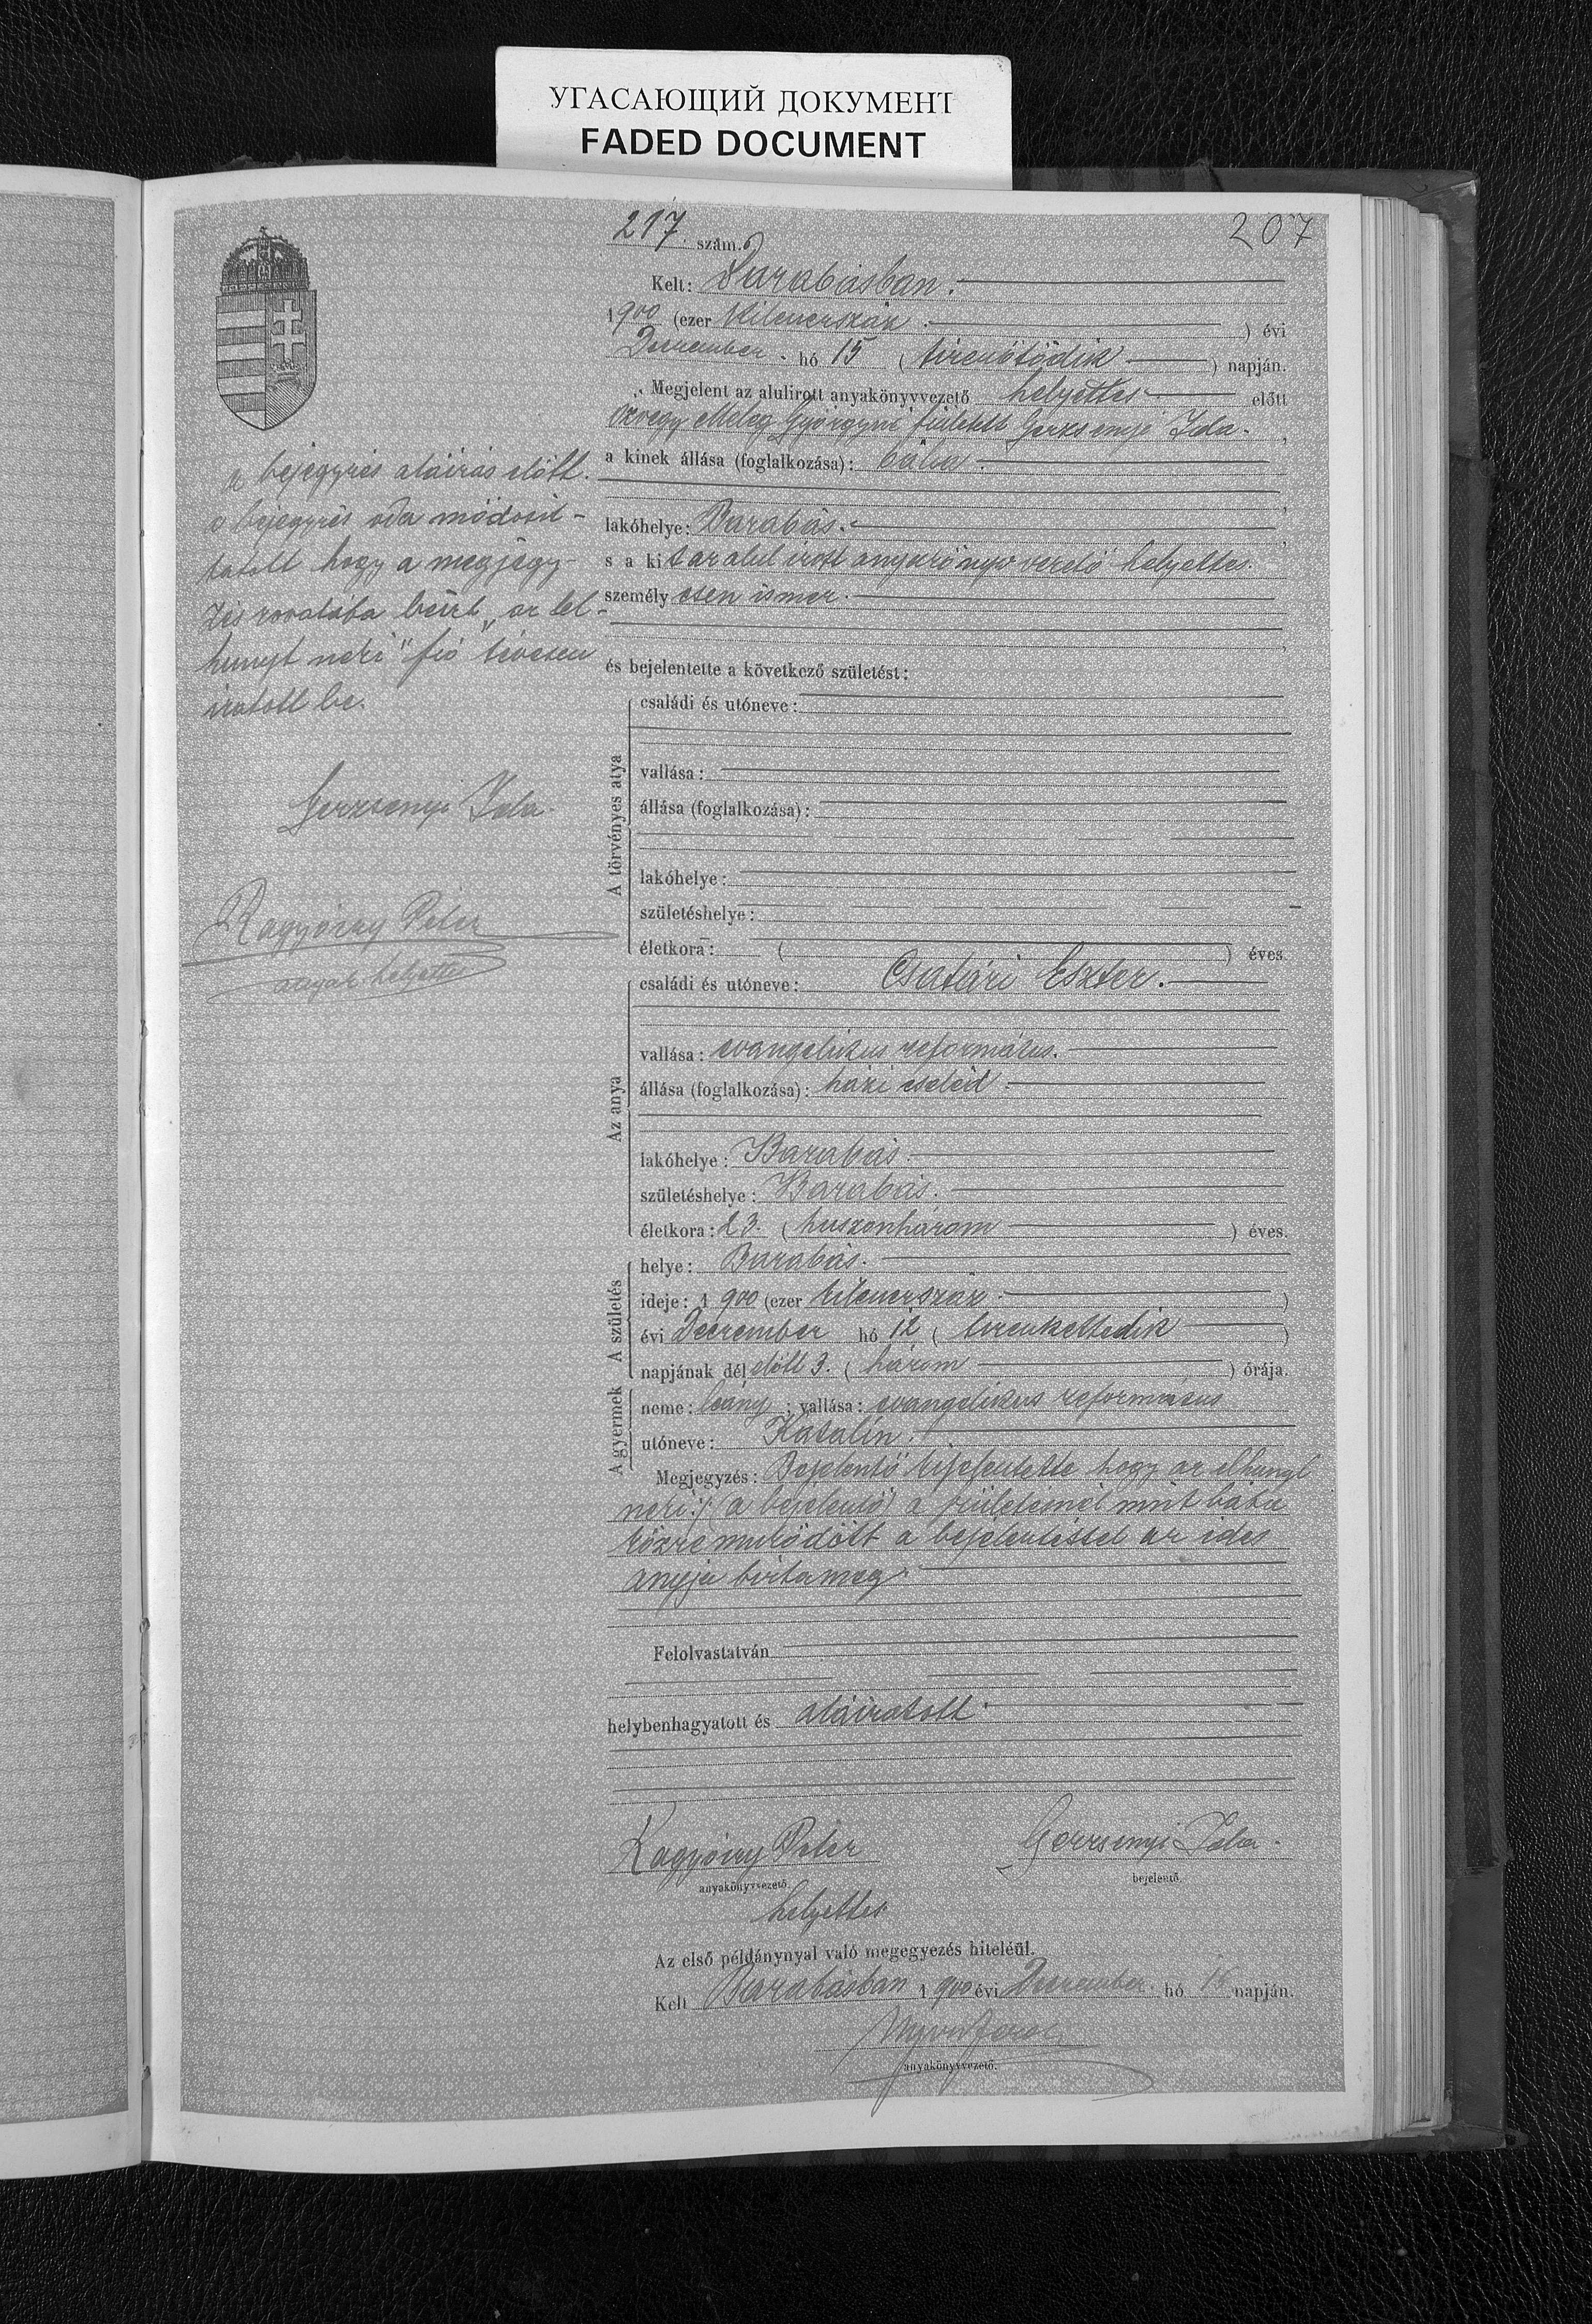 УГАСАЮЩИЙ ДОКУМЕНТ
FADED DOCUMENT
217. szám.
207
Kelt: Barabásban.
1900 (ezer kilenczszáz ) évi
Deczember hó 15 ( tizenötödik ) napján.
Megjelent az alulirott anyakönyvvezető helyettes előtt
özvegy Meleg Györgyné született Gerzsenyi Ida.
a kinek állása (foglalkozása): bába
lakóhelye: Barabás.
s a kit az alul irott anyakönyv vezető helyettes
személyesen ismer.
és bejelentette a következő születést:
A törvényes atya
családi és utóneve:
vallása:
állása (foglalkozása):
lakóhelye:
születéshelye:
életkora: ( ) éves.
Az anya
családi és utóneve: Csatári Eszter.
vallása: evangelikus református.
állása (foglalkozása): házi cseléd
lakóhelye: Barabás.
születéshelye: Barabás.
életkora: 23. ( huszonhárom ) éves.
A születés
helye: Barabás.
ideje: 1 900 (ezer kilenczszáz )
évi Deczember hó 12 ( tizenkettedik )
napjának dél előtt 3. ( három ) órája.
A gyermek
neme: leány; vallása: evangelikus református
utóneve: Katalin.
Megjegyzés: Bejelentő kijelentette hogy az elhunyt
neki (a bejelentő) a születésnél mint bába
közre működött a bejelentéssel az édes
anyja bizta meg
Felolvastatván
helybenhagyatott és aláiratott
Ragyóczy Péter
anyakönyvvezető
helyettes
Gerzsenyi Ida.
bejelentő.
Az első példánynyal való megegyezés hiteléül.
Kelt Barabásban 1 900 évi Deczember hó 15 napján.
anyakönyvvezető.
a bejegyzés aláirás előtt
a bejegyzés oda módosit-
tatott hogy a megjegy-
zés rovatába béirt „az el-
hunyt neki" szó tévesen
iratott be.
Gerzsenyi Ida.
Ragyóczy Péter
anyak. helyettes